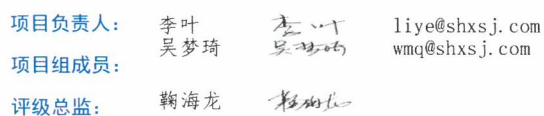 项目负责人： 李叶 李叶 liye@shxsj.com
吴梦琦 吴梦琦 wmq@shxsj.com
项目组成员：
评级总监： 鞠海龙 鞠海龙